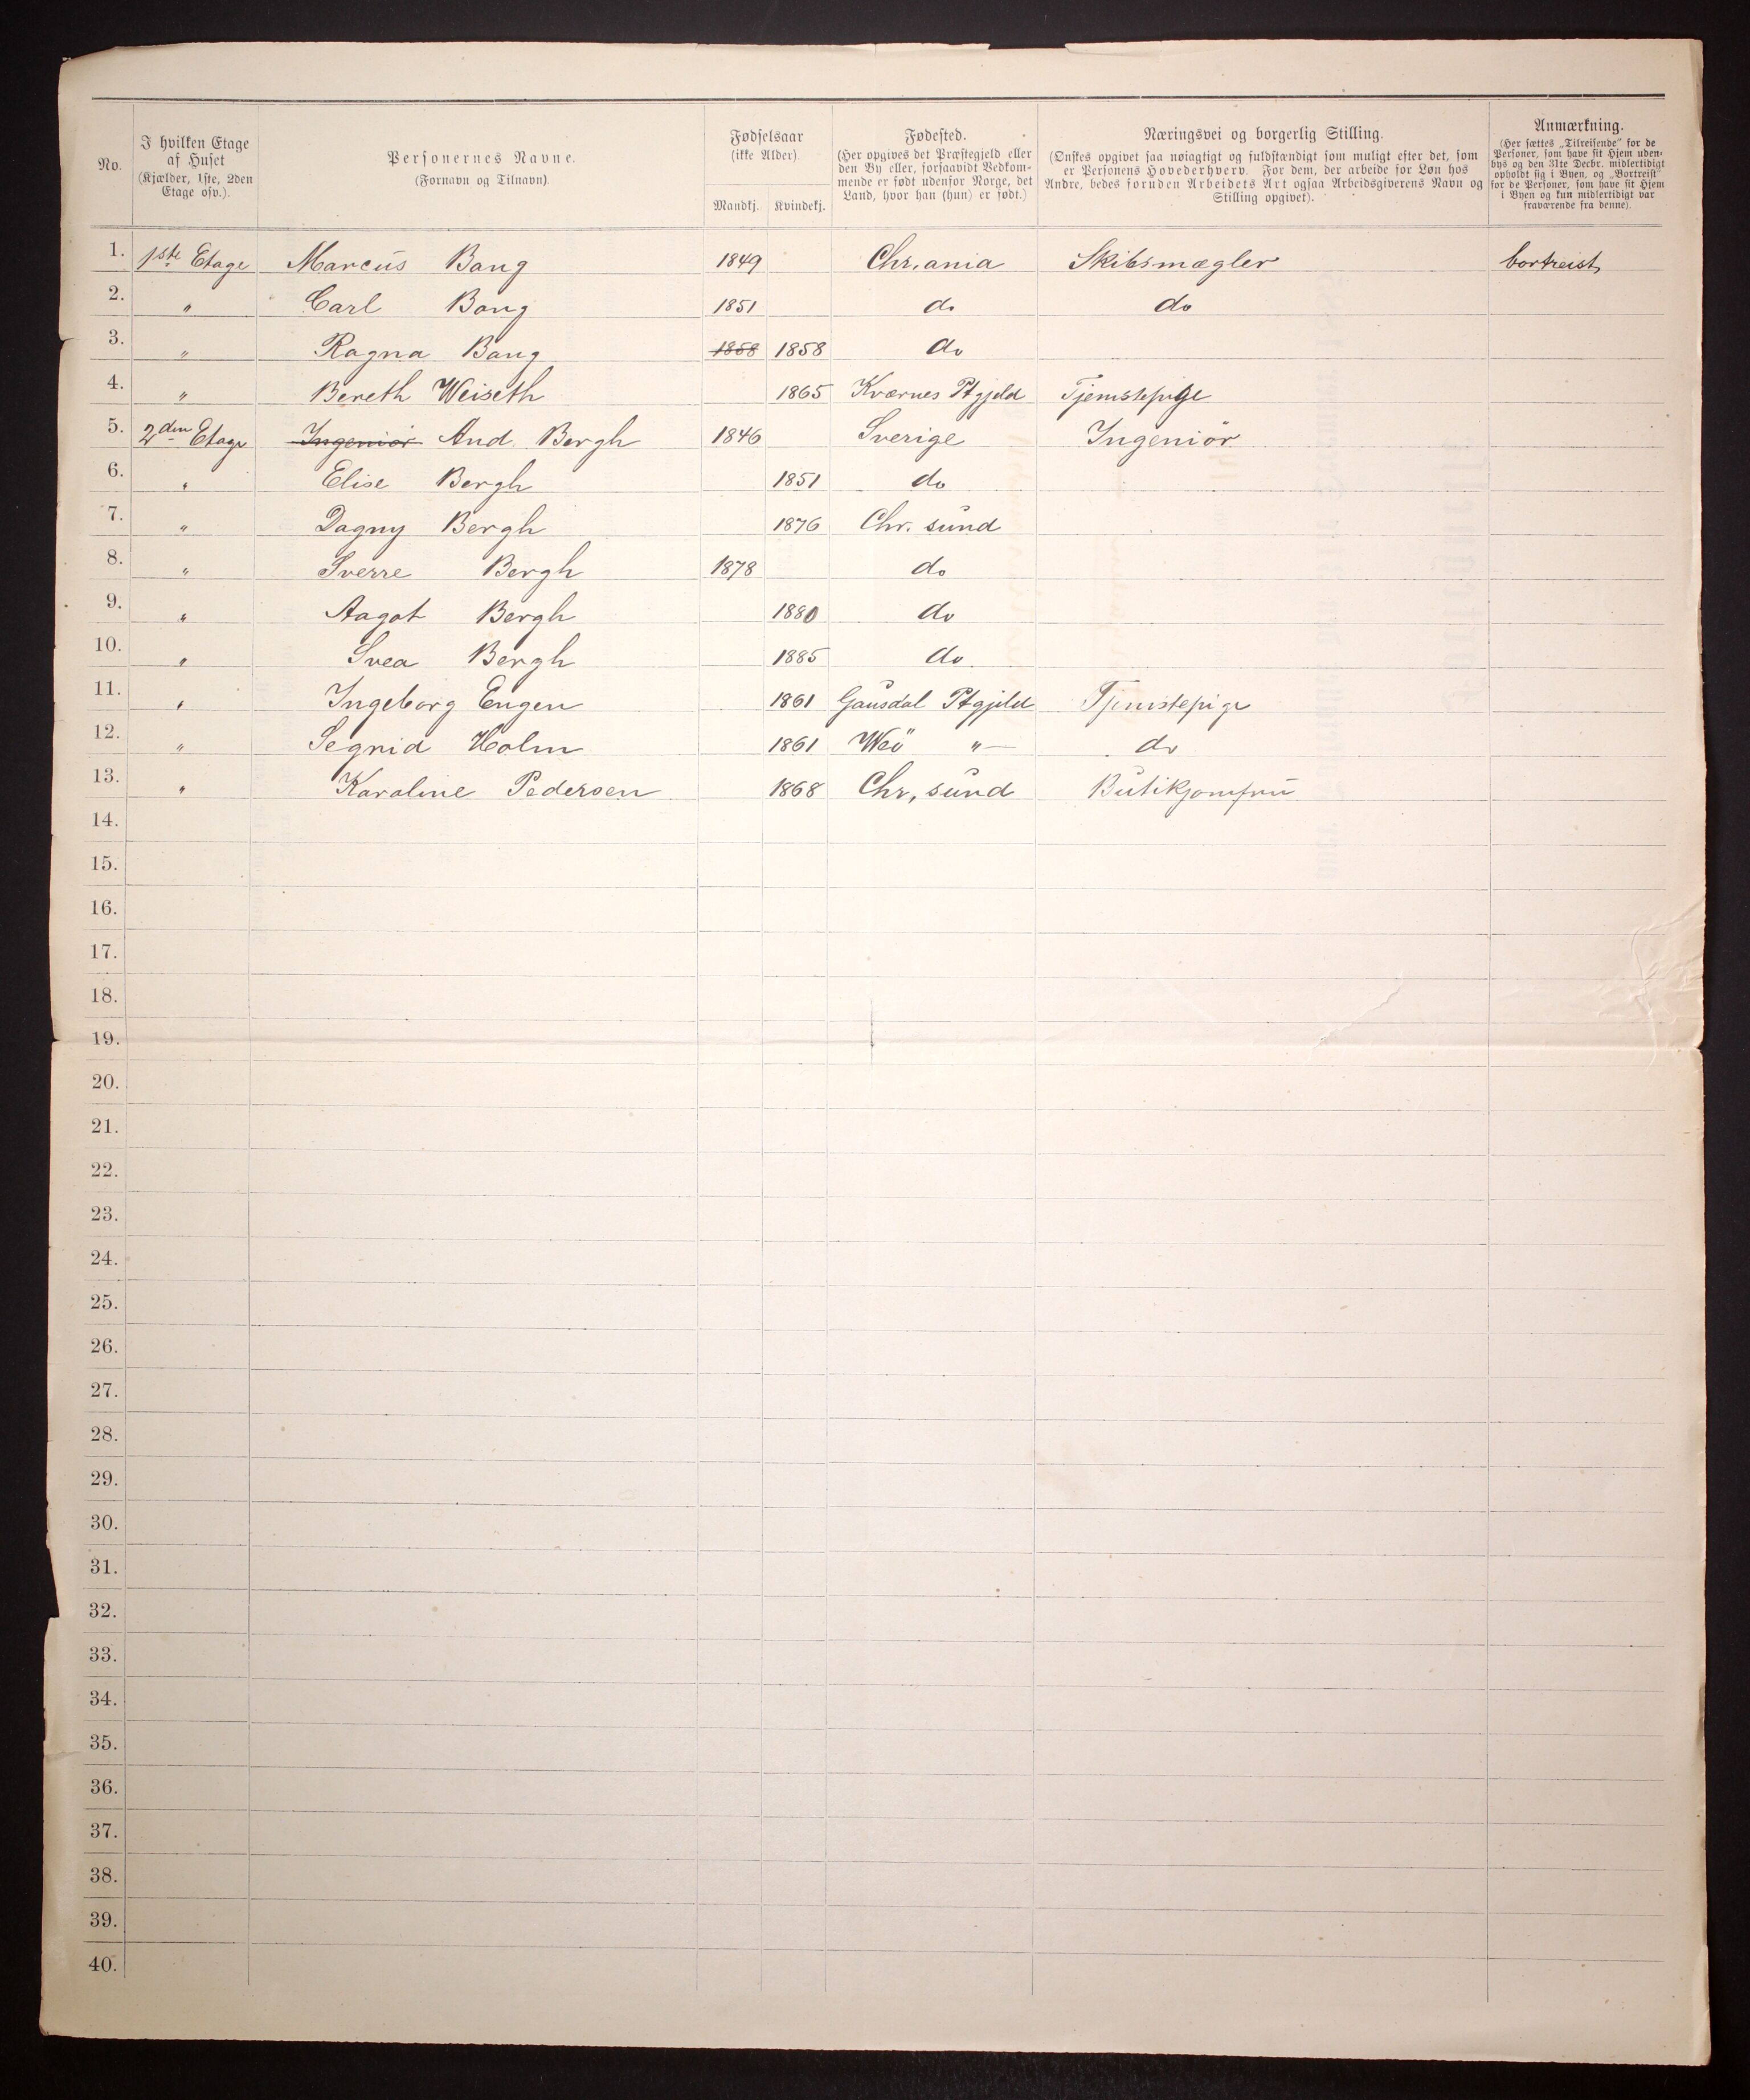 No.
I hvilken Etage
af Huset
(Kjælder, 1ste, 2den
Etage osv.).
Personernes Navne.
(Fornavn og Tilnavn).
Fødselsaar
(ikke Alder).
Mandkj. Kvindekj.
Fødested.
(Her opgives det Præstegjeld eller
den By eller, forsaavidt Vedkom-
mende er født udenfor Norge, det
Land, hvor han (hun) er født.)
Næringsvei og borgerlig Stilling.
(Ønskes opgivet saa nøiagtigt og fuldstændigt som muligt efter det, som
er Personens Hovederhverv. For dem, der arbeide for Løn hos
Andre, bedes foruden Arbeidets Art ogsaa Arbeidsgiverens Navn og
Stilling opgivet).
Anmærkning.
(Her sættes „Tilreisende“ for de
Personer, som have sit Hjem uden-
bys og den 31te Decbr. midlertidigt
opholdt sig i Byen, og „Bortreist“
for de Personer, som have sit Hjem
i Byen og kun midlertidigt var
fraværende fra denne).
1. 1ste Etage Marcus Bang 1849 Chr,ania Skibsmægler bortreist
2. " Carl Bang 1851 do do
3. " Ragna Bang 1858 1858 do
4. " Bereth Weiseth 1865 Kværnes Ptgjeld Tjenstepige
5. 2den Etage Ingeniör And. Bergh 1846 Sverige Ingeniör
6. " Elise Bergh 1851 do
7. " Dagny Bergh 1876 Chr. sund
8. " Sverre Bergh 1878 do
9. " Aagot Bergh 1880 do
10. " Svea Bergh 1885 do
11. " Ingeborg Engen 1861 Gausdal Ptgjeld Tjenstepige
12. " Segrid Holm 1861 Weö "— do
13. " Karoline Pedersen 1868 Chr, sund Butikjomfru
14.
15.
16.
17.
18.
19.
20.
21.
22.
23.
24.
25.
26.
27.
28.
29.
30.
31.
32.
33.
34.
35.
36.
37.
38.
39.
40.